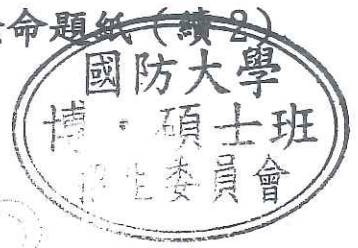 命題紙(續2)
國防大學
博・碩士班
招生委員會